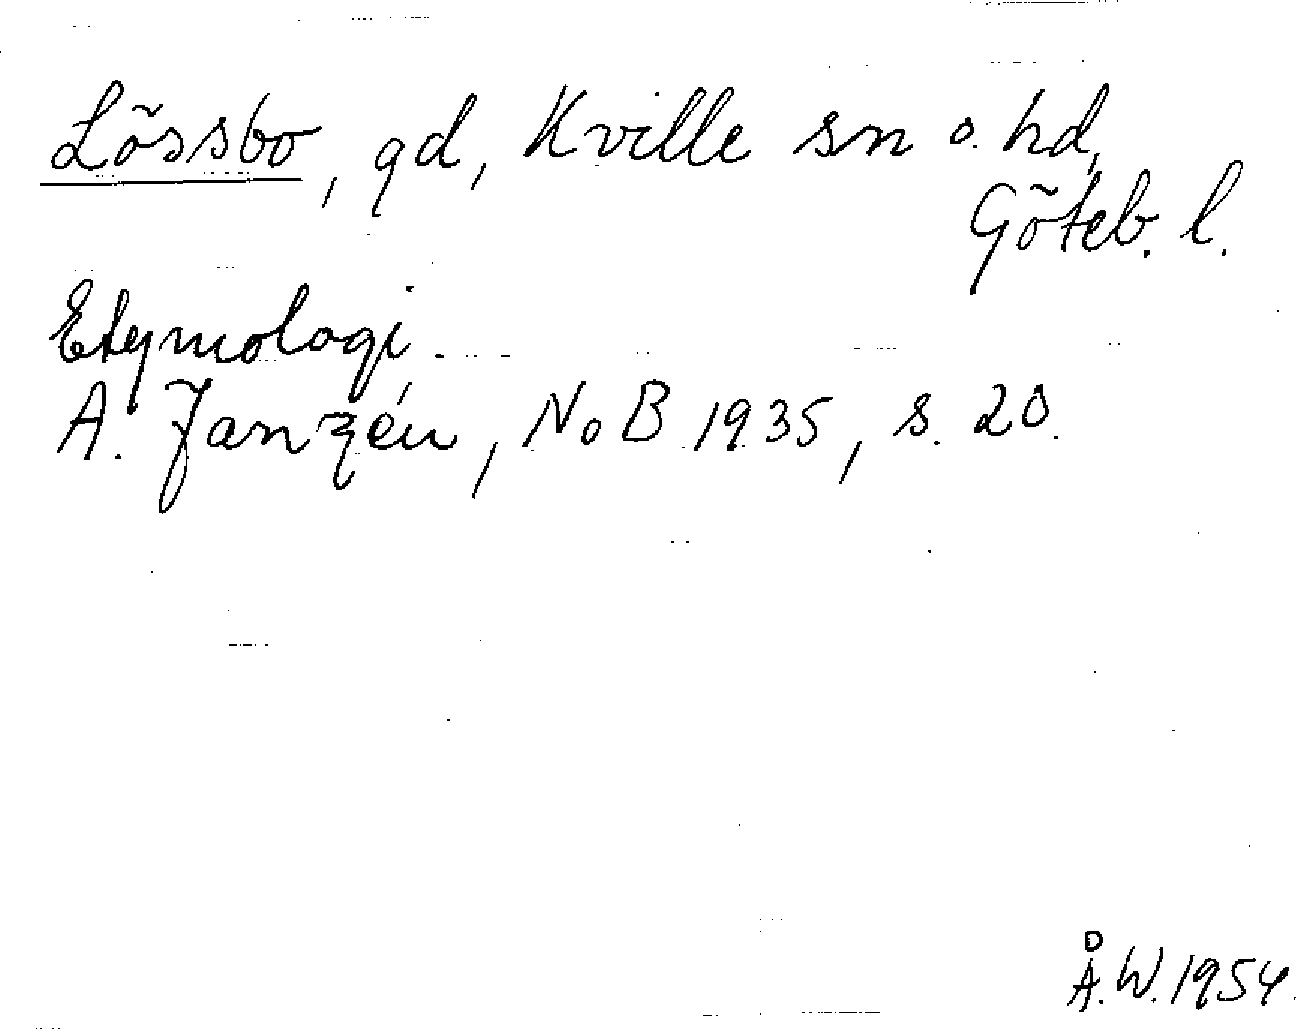 Lössbo, gd, Kville sn o. hd,
Göteb. l.
Etymologi.
A. Janzén, NoB 1935, s. 20.
Å.W. 1954.